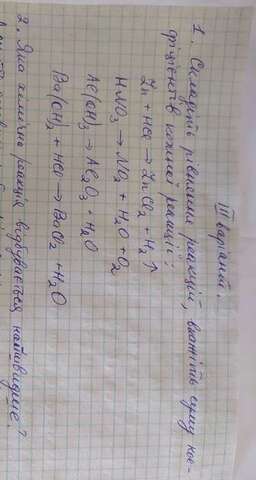 III варіант.
1. Складіть рівняння реакцій, вкажіть суму кое-
фіцієнтів кожної реакції:
Zn + HCl → ZnCl₂ + H₂↑
HNO₃ → NO₂ + H₂O + O₂
Al(OH)₃ → Al₂O₃ + H₂O
Ba(OH)₂ + HCl → BaCl₂ + H₂O
2. Яка хімічна реакція відбувається найшвидше?